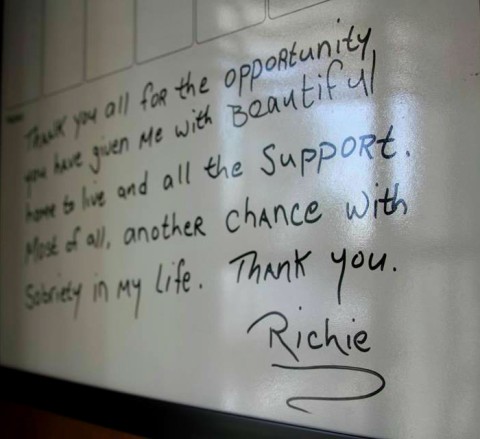 Thank you all for the opportunity
you have given me with Beautiful
home to live and all the support.
Most of all, another chance with
Sobriety in my life. Thank you.
Richie